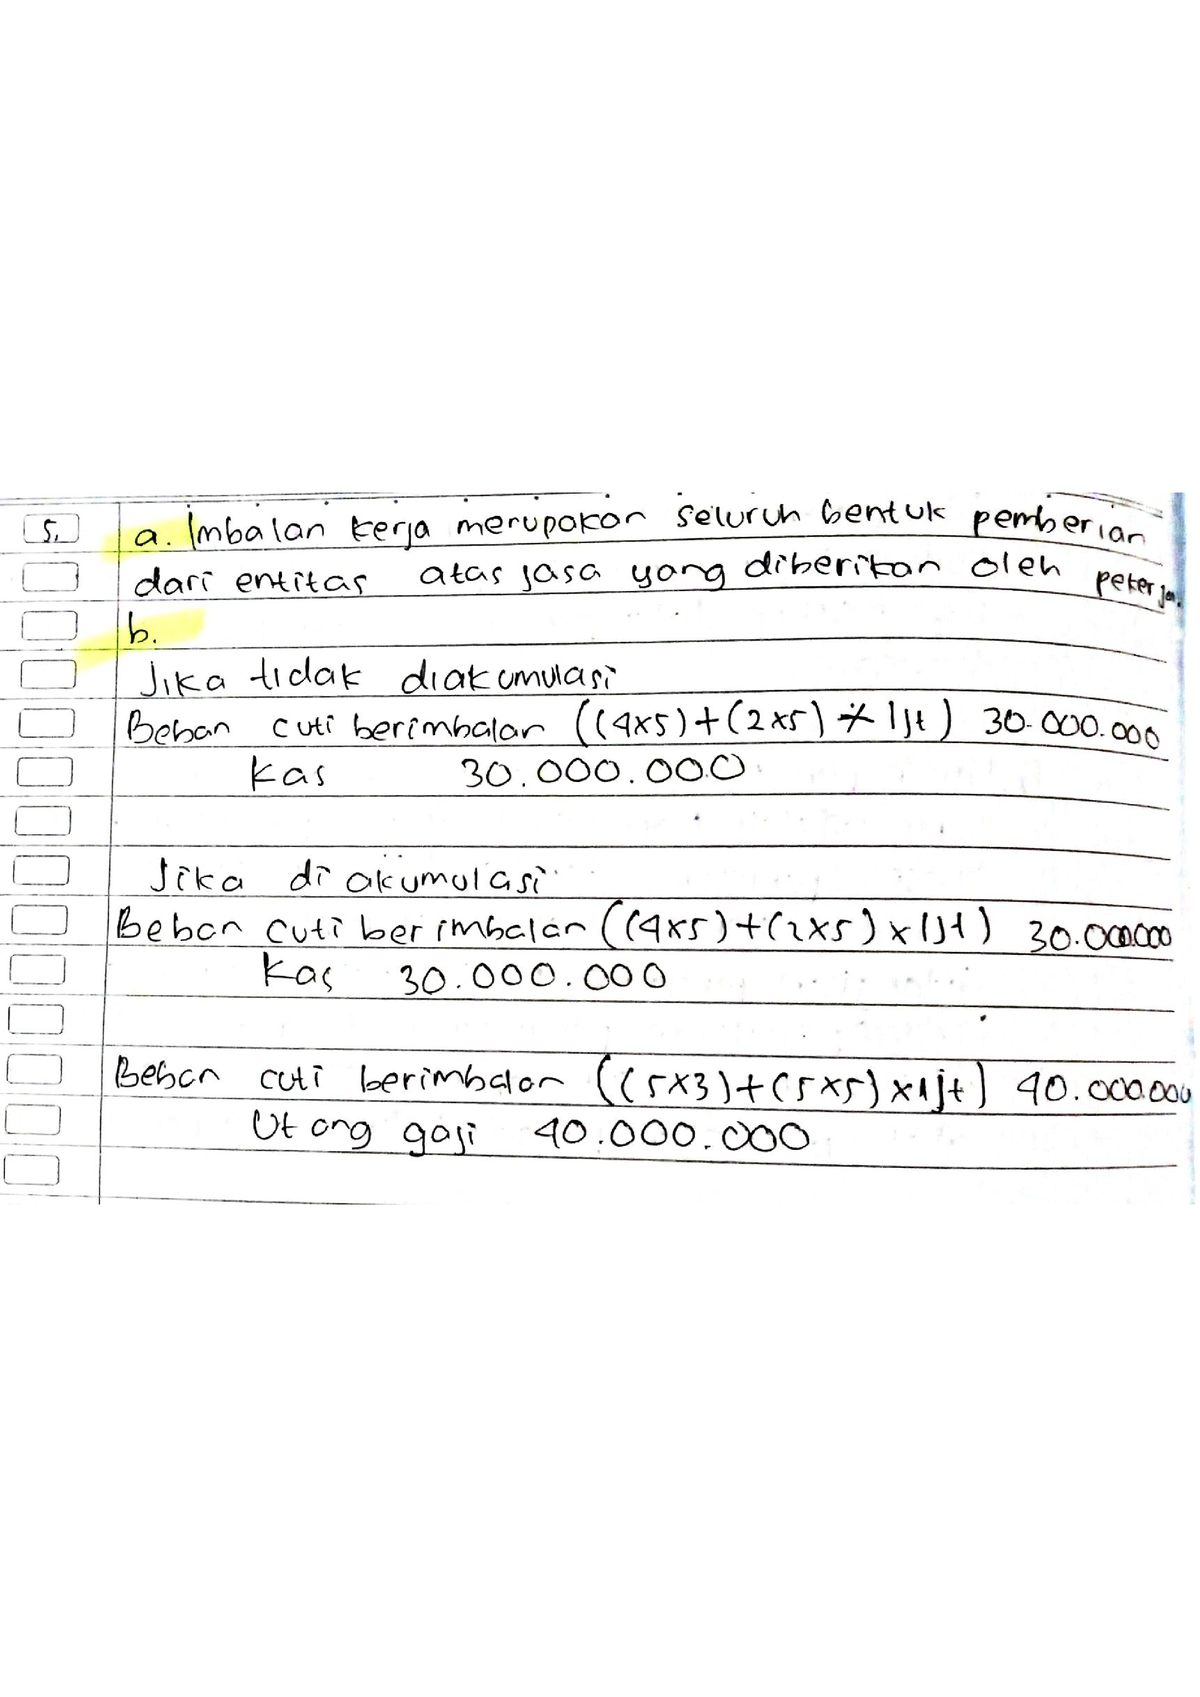 5.
a. Imbalan kerja merupakan seluruh bentuk pemberian
dari entitas atas jasa yang diberikan oleh pekerja.
b.
Jika tidak diakumulasi
Beban cuti berimbalan ((4x5)+(2x5) x 1jt) 30.000.000
Kas 30.000.000
Jika di akumulasi
Beban cuti berimbalan ((4x5)+(2x5) x 1jt) 30.000.000
Kas 30.000.000
Beban cuti berimbalan ((5x3)+(5x5) x 1jt) 40.000.000
Utang gaji 40.000.000